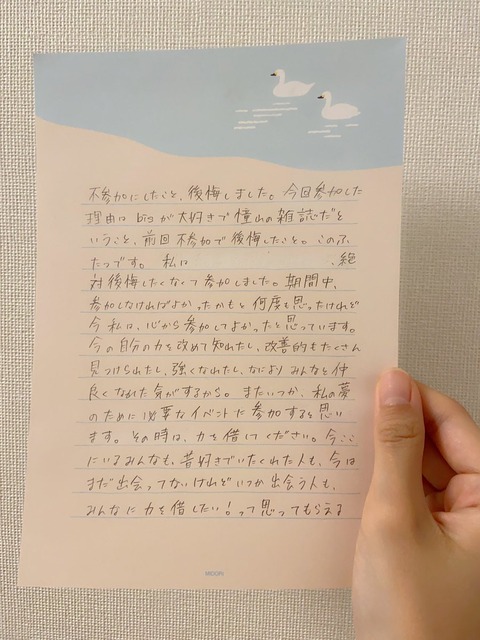 不参加にしたこと、後悔しました。今回参加した
理由は bisが大好きで憧れの雑誌だと
いうこと、前回不参加で後悔したこと。このふ
たつです。私は 、絶
対後悔したくなくて参加しました。期間中、
参加しなければよかったかもと何度も思ったけれど
今私は、心から参加してよかったと思っています。
今の自分の力を改めて知れたし、改善的もたくさん
見つけられたし、強くなれたし、なによりみんなと仲
良くなれた気がするから。またいつか、私の夢
のために必要なイベントに参加すると思い
ます。その時は、力を借してください。今ここ
にいるみんなも、昔好きでいたくれた人も、今は
まだ出会ってないけれどいつか出会う人も、
みんなに力を借したい！って思ってもらえる
MIDORI